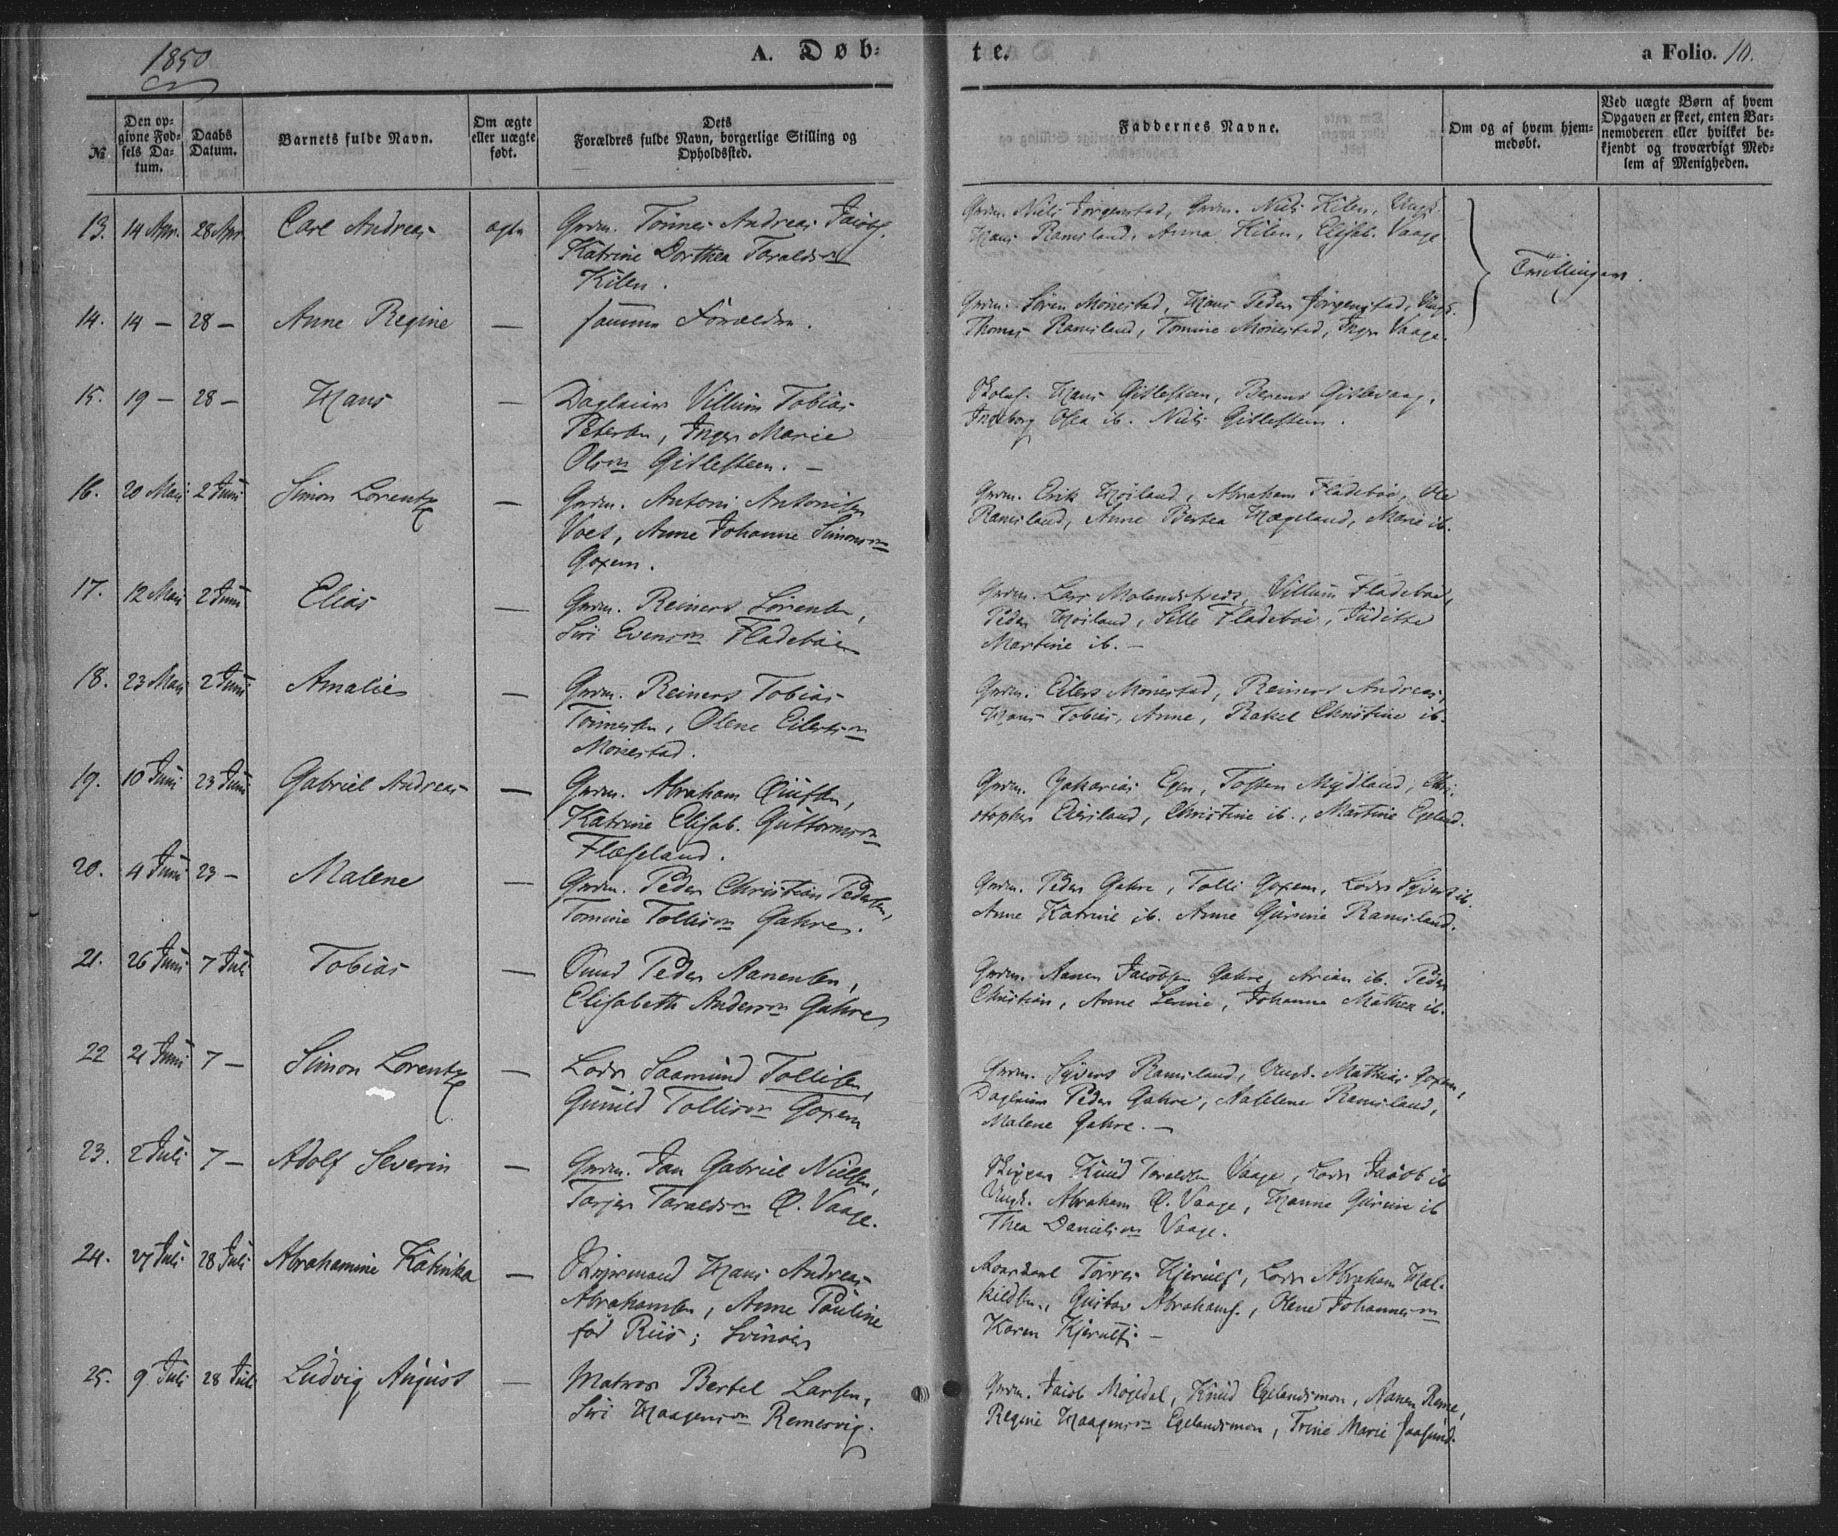 1850
A. Døb-
te.
a Folio. 10.
№
Den op-
givne Fød-
sels Da-
tum.
Daabs
Datum.
Barnets fulde Navn.
Om ægte
eller uægte
født.
Dets
Forældres fulde Navn, borgerlige Stilling og
Opholdssted.
Faddernes Navne.
Om og af hvem hjem-
medøbt.
Ved uægte Børn af hvem
Opgaven er skeet, enten Bar-
nemoderen eller hvilket be-
kjendt og troværdigt Med-
lem af Menigheden.
13. 14 Apr. 28 Apr. Carl Andreas ægte Grdm. Tønnes Andreas Jacobs.
Katrine Dorthea Taralds
Kilen.
Grdm. Niels Jørgenstad, Grdm. Niels Kilen, Ungk.
Hans Ramsland, Anna Kilen, Elisab. Vaage.
Tvillinger.
14. 14 — 28 — Anne Regine — samme Forældre.
Grdm. Søren Mønestad, Hans Peder Jørgenstad, Ungk.
Thomas Ramsland, Tomine Mønestad, Inger Vaage.
15. 19 — 28 — Hans — Dagleier Villum Tobias
Petersen, Inger Marie
Ols Gislesteen. —
Hans Gislesteen, Berent Gislevaag,
Ingeborg Olea ib. Niels Gislesteen.
16. 20 Mai 2 Juni Simon Lorentz — Grdm. Antoni Antonisen
Voet, Anne Johanne Simons
Goxem.
Grdm. Erik Høiland, Abraham Fladebøe, Ole
Ramsland, Anne Bertea Hægeland, Marie ib.
17. 12 Mai 2 Juni Elias — Grdm. Reinert Sørensen,
Siri Evens Fladebøe
Grdm. Lars Molandstveds, Villum Fladebøe,
Peder Høiland, Sille Fladebøe, Juditte
Martine ib. —
18. 23 Mai 2 Juni Amalie — Grdm. Reinert Tobias
Tønnesen, Olene Eilerts
Mønestad.
Grdm. Eilert Mønestad, Reinert Andreas,
Hans Tobias, Anne, Rakel Christine ib.
19. 10 Juni 23 Juni Gabriel Andreas — Grdm. Abraham
Katrine Elisab. Guttorms
Flæseland.
Grdm. Zakarias Egen, Tosten Mydland, Chri-
stopher Eiersland, Christine ib., Martine Egeland.
20. 4 Juni 23 — Malene — Grdm. Peder Christian Pedersen,
Tomine Tollis Gahre.
Grdm. Peder Gahre, Tolli Goxem, Lods Syvert ib.
Anne Katrine ib. Anne Gurine Ramsland.
21. 26 Juni 7 Juli Tobias — Peder Aanensen,
Elisabeth Anders Gahre
Grdm. Aanen Jacobsen Gahre, Arian ib. Peder
Christian, Anne Serine, Johanne Mathea ib.
22 21 Juni 7 — Simon Lorentz — Lods Saamund Tollisen,
Gunild Tollis Goxem
Grdm. Syvert Ramsland, Ungk. Mathias Goxem,
Dagleier Peder Gahre, Nasilene Ramsland,
Malene Gahre. —
23. 2 Juli 7 — Adolf Severin — Grdm. Jan Gabriel Nielsen,
Torjer Taralds Ø. Vaage.
Skipper Knud Taraldsen Vaage, Lods Jacob ib
Ungk. Abraham Ø. Vaage, Hanne Gurine ib
Thea Daniels Vaage.
24. 27 Juli 28 Juli Abrahamine Katinka — Hans Andreas
Abrahamsen, Anne Pauline
fød Riis; Svinøer
Tørres Kjerulf, Lods Abraham Hal-
kildsen, Gustav Abrahams., Olene Johannes
Karen Kjerulf. —
25. 9 Juli 28 Juli Ludvig August — Matros Bertel Larsen,
Siri Haagens Remesvig.
Grdm. Jacob Møgedal, Knud Egelandsmon, Aanen Reme,
Regine Haagens Egelandsmon, Trine Marie Jaasund.